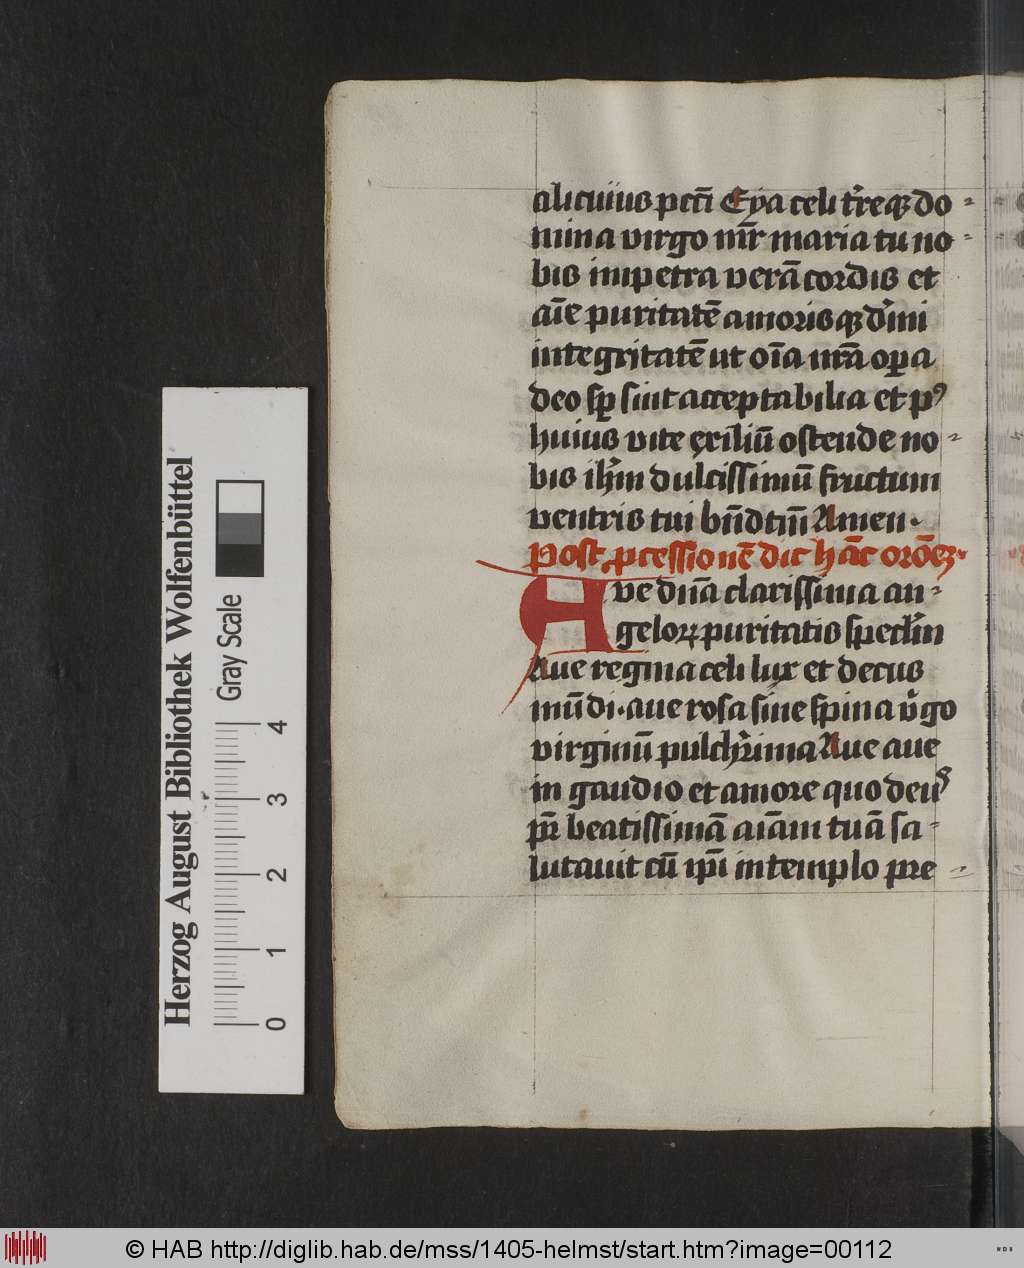 alicuius pcti Eya celi t'reqz do-
mina virgo mr maria tu no-
bis impetra verā cordis et
aīe puritatē amorisqz d'ini
integritatē ut oīa nrā opa
deo sp sint acceptabilia et p9
huius vite exiliū ostende no-
bis ih'm dulcissimū fructum
ventris tui bn̄dtm̄ Amen.
Post pcessionē dic hāc orōez.
Ave dn̄a clarissima an-
geloꝝ puritatis specl'm
Ave regina celi lux et decus
mūdi. ave rosa sine spina v'go
virginū pulch'rima Ave ave
in gaudio et amore quo deus
pr̄ beatissimā aīam tuā sa-
lutavit cū ip̄i in templo pre-
Herzog August Bibliothek Wolfenbüttel
Gray Scale
0 1 2 3 4
© HAB http://diglib.hab.de/mss/1405-helmst/start.htm?image=00112